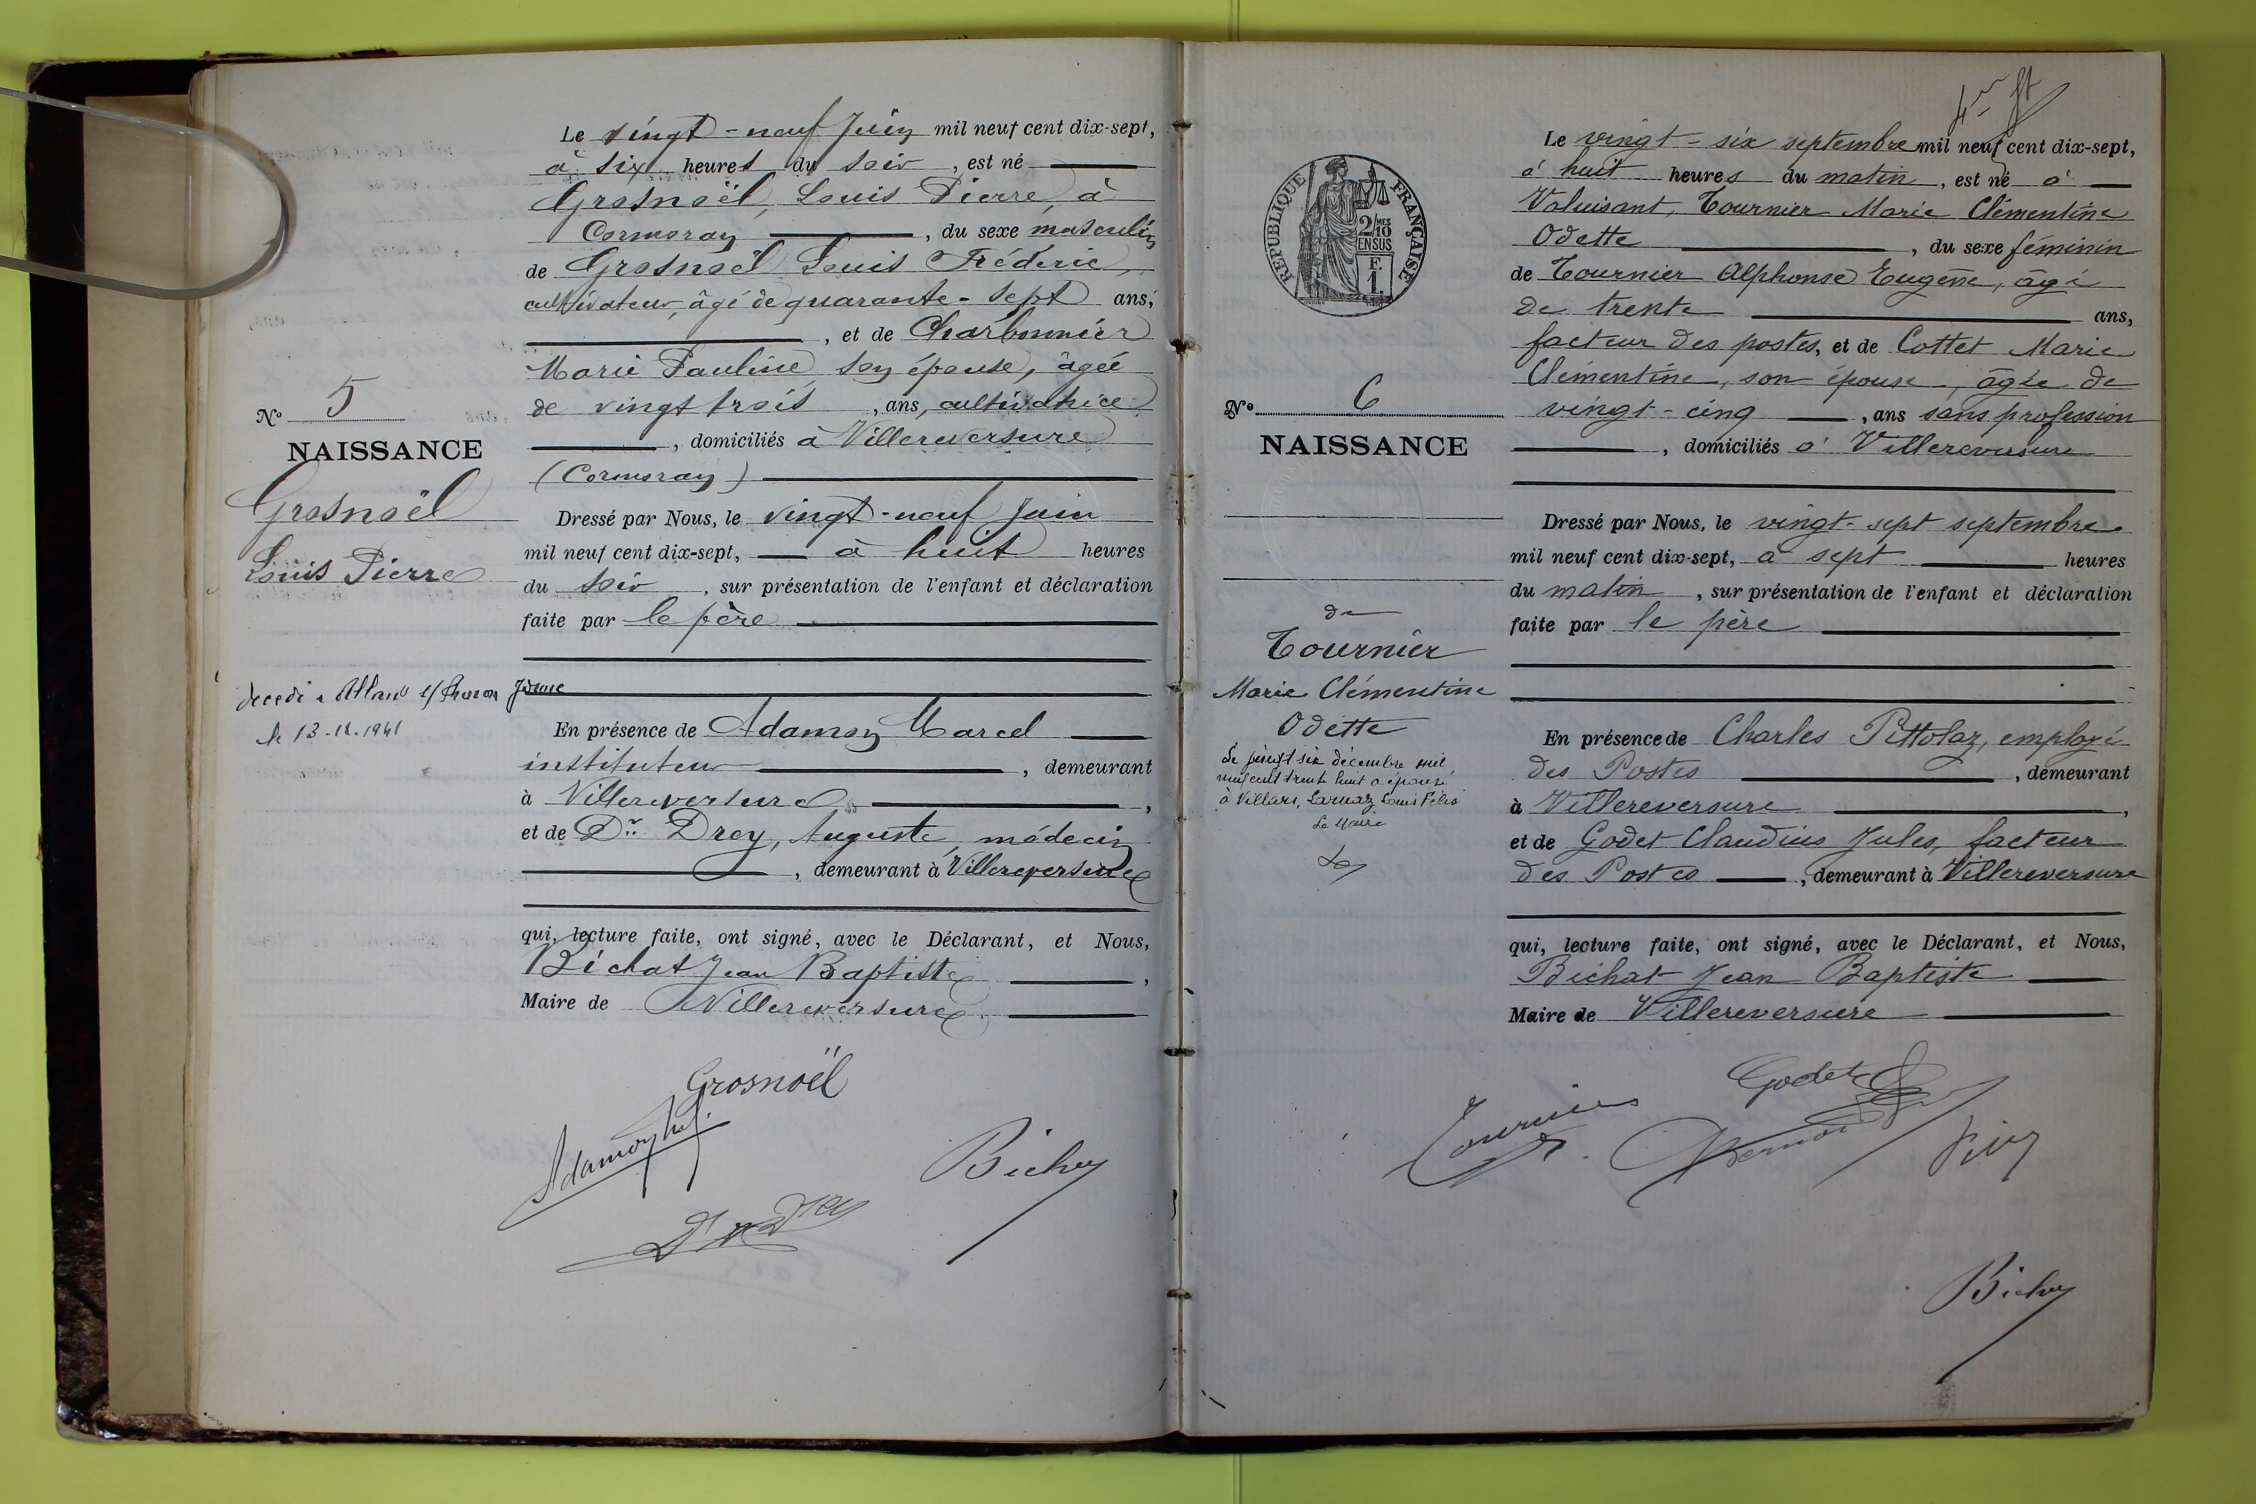 Le vingt-neuf Juin mil neuf cent dix-sept,
à six heures du soir, est né
Grosnoël, Louis Pierre, à
Cormoray, du sexe masculin
de Grosnoël Louis Fréderic,
cultivateur, âgé de quarante-sept ans,
, et de Charbonnier
Marie Pauline, son épouse, âgée
de vingt trois, ans, cultivatrice
, domiciliés à Villereversure
(Cormoray)
N° 5
NAISSANCE
Grosnoël
Louis Pierre
Dressé par Nous, le vingt-neuf Juin
mil neuf cent dix-sept, à huit heures
du soir, sur présentation de l'enfant et déclaration
faite par le père
décédé à
le 13.12.1941
En présence de Adamoy Marcel
instituteur, demeurant
à Villereversure,
et de Dr. Drey, Auguste, médecin
, demeurant à Villereversure
qui, lecture faite, ont signé, avec le Déclarant, et Nous,
Bichat Jean Baptiste,
Maire de Villereversure
Grosnoël
Adamoy
Bichat
Le vingt-six septembre mil neuf cent dix-sept,
à huit heures du matin, est né à
Valuisant, Tournier Marie Clémentine
Odette, du sexe féminin
de Tournier Alphonse Eugène, âgé
de trente ans,
facteur des postes, et de Cottet Marie
Clémentine, son épouse, âgée de
vingt-cinq, ans sans profession
, domiciliés à Villereversure
RÉPUBLIQUE FRANÇAISE
2/10 MES
EN SUS
F.
1.
N° 6
NAISSANCE
de
Tournier
Marie Clémentine
Odette
Le vingt six décembre mil
neuf cent trente huit a épousé
à Villars, Larnaz Louis Félix
Le Maire
Dressé par Nous, le vingt-sept septembre
mil neuf cent dix-sept, à sept heures
du matin, sur présentation de l'enfant et déclaration
faite par le père
En présence de Charles Pittolaz, employé
des Postes, demeurant
à Villereversure,
et de Godet Claudius Jules, facteur
des Postes, demeurant à Villereversure
qui, lecture faite, ont signé, avec le Déclarant, et Nous,
Bichat Jean Baptiste
Maire de Villereversure
Godet
Tournier
Bichat